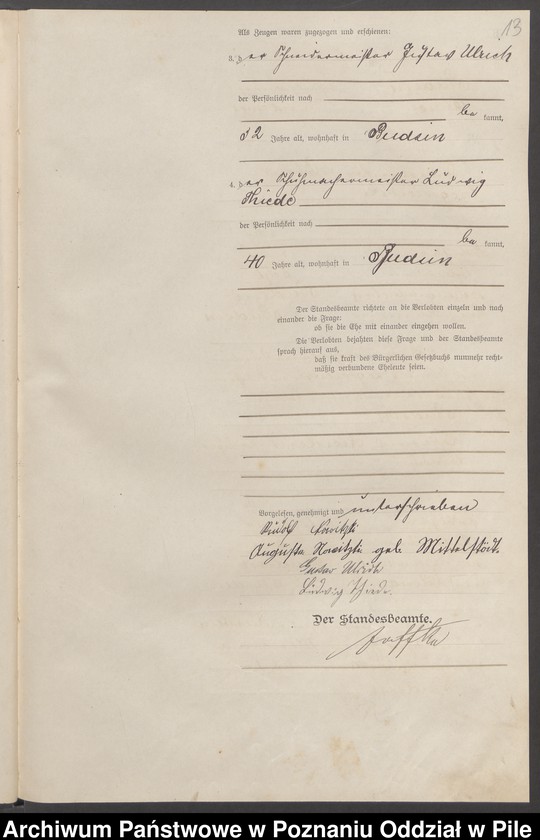 13
Als Zeugen waren zugezogen und erschienen:
der Schneidermeister Gustav Ulrich
der Persönlichkeit nach
be kannt,
52 Jahre alt, wohnhaft in Budsin
4. der Schuhmachermeister Ludwig
Thiede
der Persönlichkeit nach
be kannt,
40 Jahre alt, wohnhaft in Budsin
Der Standesbeamte richtete an die Verlobten einzeln und nach
einander die Frage:
ob sie die Ehe mit einander eingehen wollen.
Die Verlobten bejahten diese Frage und der Standesbeamte
sprach hierauf aus,
daß sie kraft des Bürgerlichen Gesetzbuchs nunmehr recht-
mäßig verbundene Eheleute seien.
Vorgelesen, genehmigt und unterschrieben
Rudolf
Augusta Nawitzki geb. Mittelstädt.
Gustav Ulrich
Ludwig Thiede
Der Standesbeamte.
Archiwum Państwowe w Poznaniu Oddział w Pile